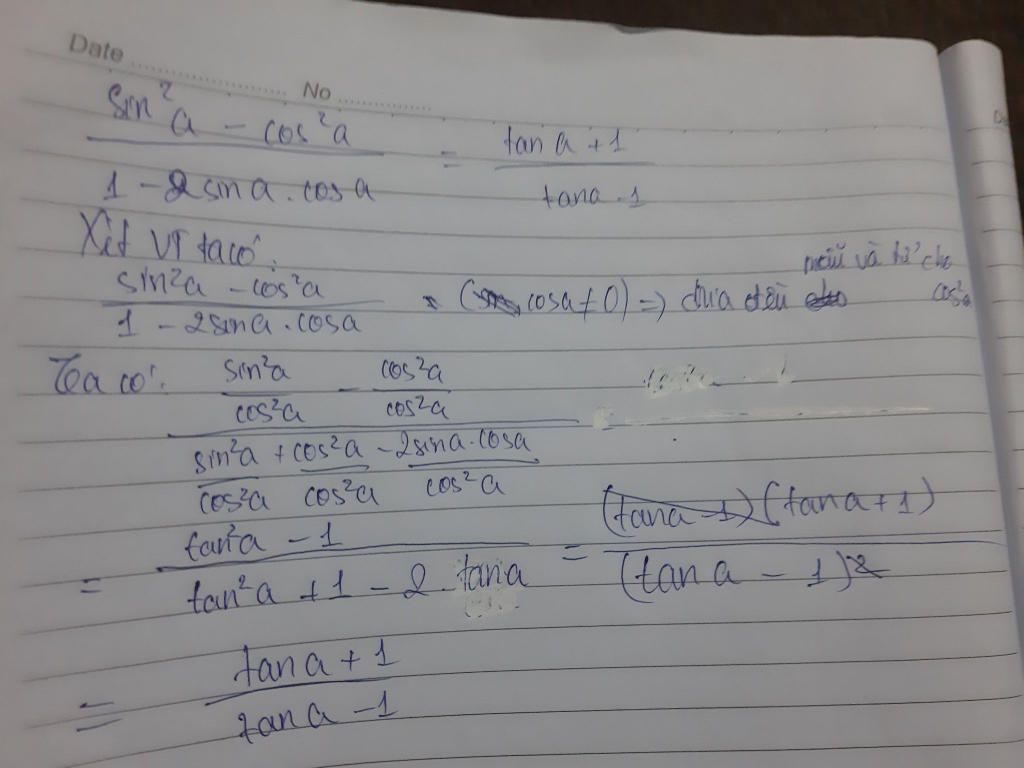 Date ........................ No ................
sin²a - cos²a / 1 - 2sina.cosa = tan a + 1 / tana - 1
Xét VT ta có:
sin²a - cos²a / 1 - 2sina.cosa (cosa ≠ 0) => chia đều mẫu và tử cho cos²a
Ta có: sin²a/cos²a - cos²a/cos²a
sin²a/cos²a + cos²a/cos²a - 2sina.cosa/cos²a
= tan²a - 1 / tan²a + 1 - 2.tana = (tana - 1)(tana + 1) / (tan a - 1)2
= tan a + 1 / tan a - 1